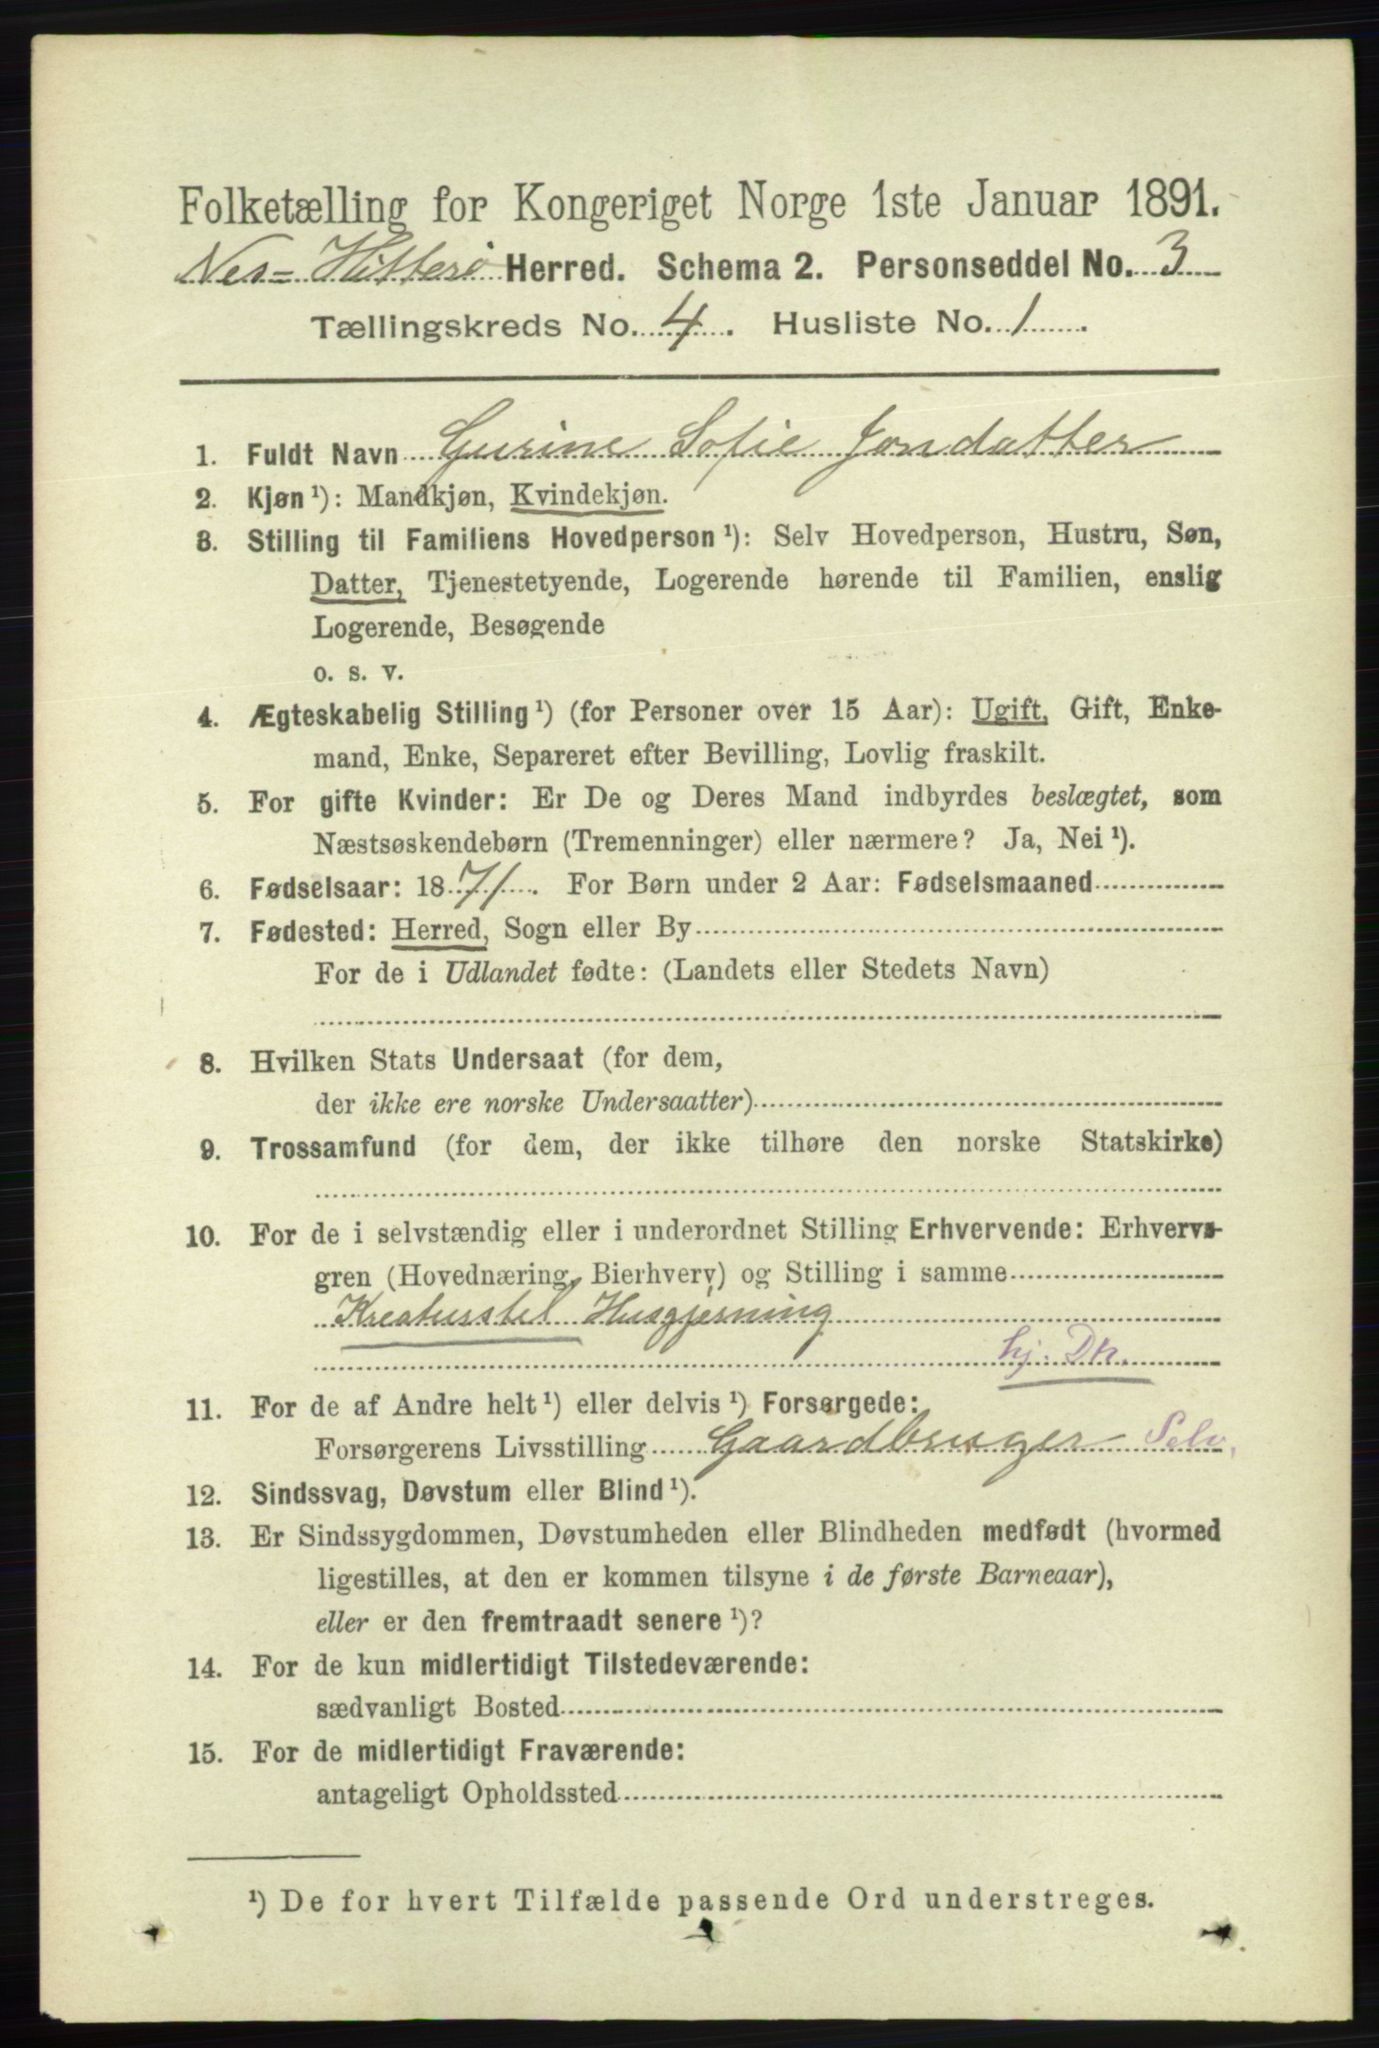 Folketælling for Kongeriget Norge 1ste Januar 1891.
Nes=Hitterø Herred. Schema 2. Personseddel No. 3
Tællingskreds No. 4. Husliste No. 1.
1. Fuldt Navn Gurine Sofie Jondatter
2. Kjøn ¹): Mandkjøn, Kvindekjøn.
3. Stilling til Familiens Hovedperson ¹): Selv Hovedperson, Hustru, Søn,
Datter, Tjenestetyende, Logerende hørende til Familien, enslig
Logerende, Besøgende
o. s. v.
4. Ægteskabelig Stilling ¹) (for Personer over 15 Aar): Ugift, Gift, Enke-
mand, Enke, Separeret efter Bevilling, Lovlig fraskilt.
5. For gifte Kvinder: Er De og Deres Mand indbyrdes beslægtet, som
Næstsøskendebørn (Tremenninger) eller nærmere? Ja, Nei ¹).
6. Fødselsaar: 1871. For Børn under 2 Aar: Fødselsmaaned
7. Fødested: Herred, Sogn eller By
For de i Udlandet fødte: (Landets eller Stedets Navn)
8. Hvilken Stats Undersaat (for dem,
der ikke ere norske Undersaatter)
9. Trossamfund (for dem, der ikke tilhøre den norske Statskirke)
10. For de i selvstændig eller i underordnet Stilling Erhvervende: Erhvervs-
gren (Hovednæring, Bierhverv) og Stilling i samme
Kreaturstel Husgjerning
hj. Dtr.
11. For de af Andre helt ¹) eller delvis ¹) Forsørgede:
Forsørgerens Livsstilling Gaardbruger Selv.
12. Sindssvag, Døvstum eller Blind ¹).
13. Er Sindssygdommen, Døvstumheden eller Blindheden medfødt (hvormed
ligestilles, at den er kommen tilsyne i de første Barneaar),
eller er den fremtraadt senere ¹)?
14. For de kun midlertidigt Tilstedeværende:
sædvanligt Bosted
15. For de midlertidigt Fraværende:
antageligt Opholdssted
¹) De for hvert Tilfælde passende Ord understreges.